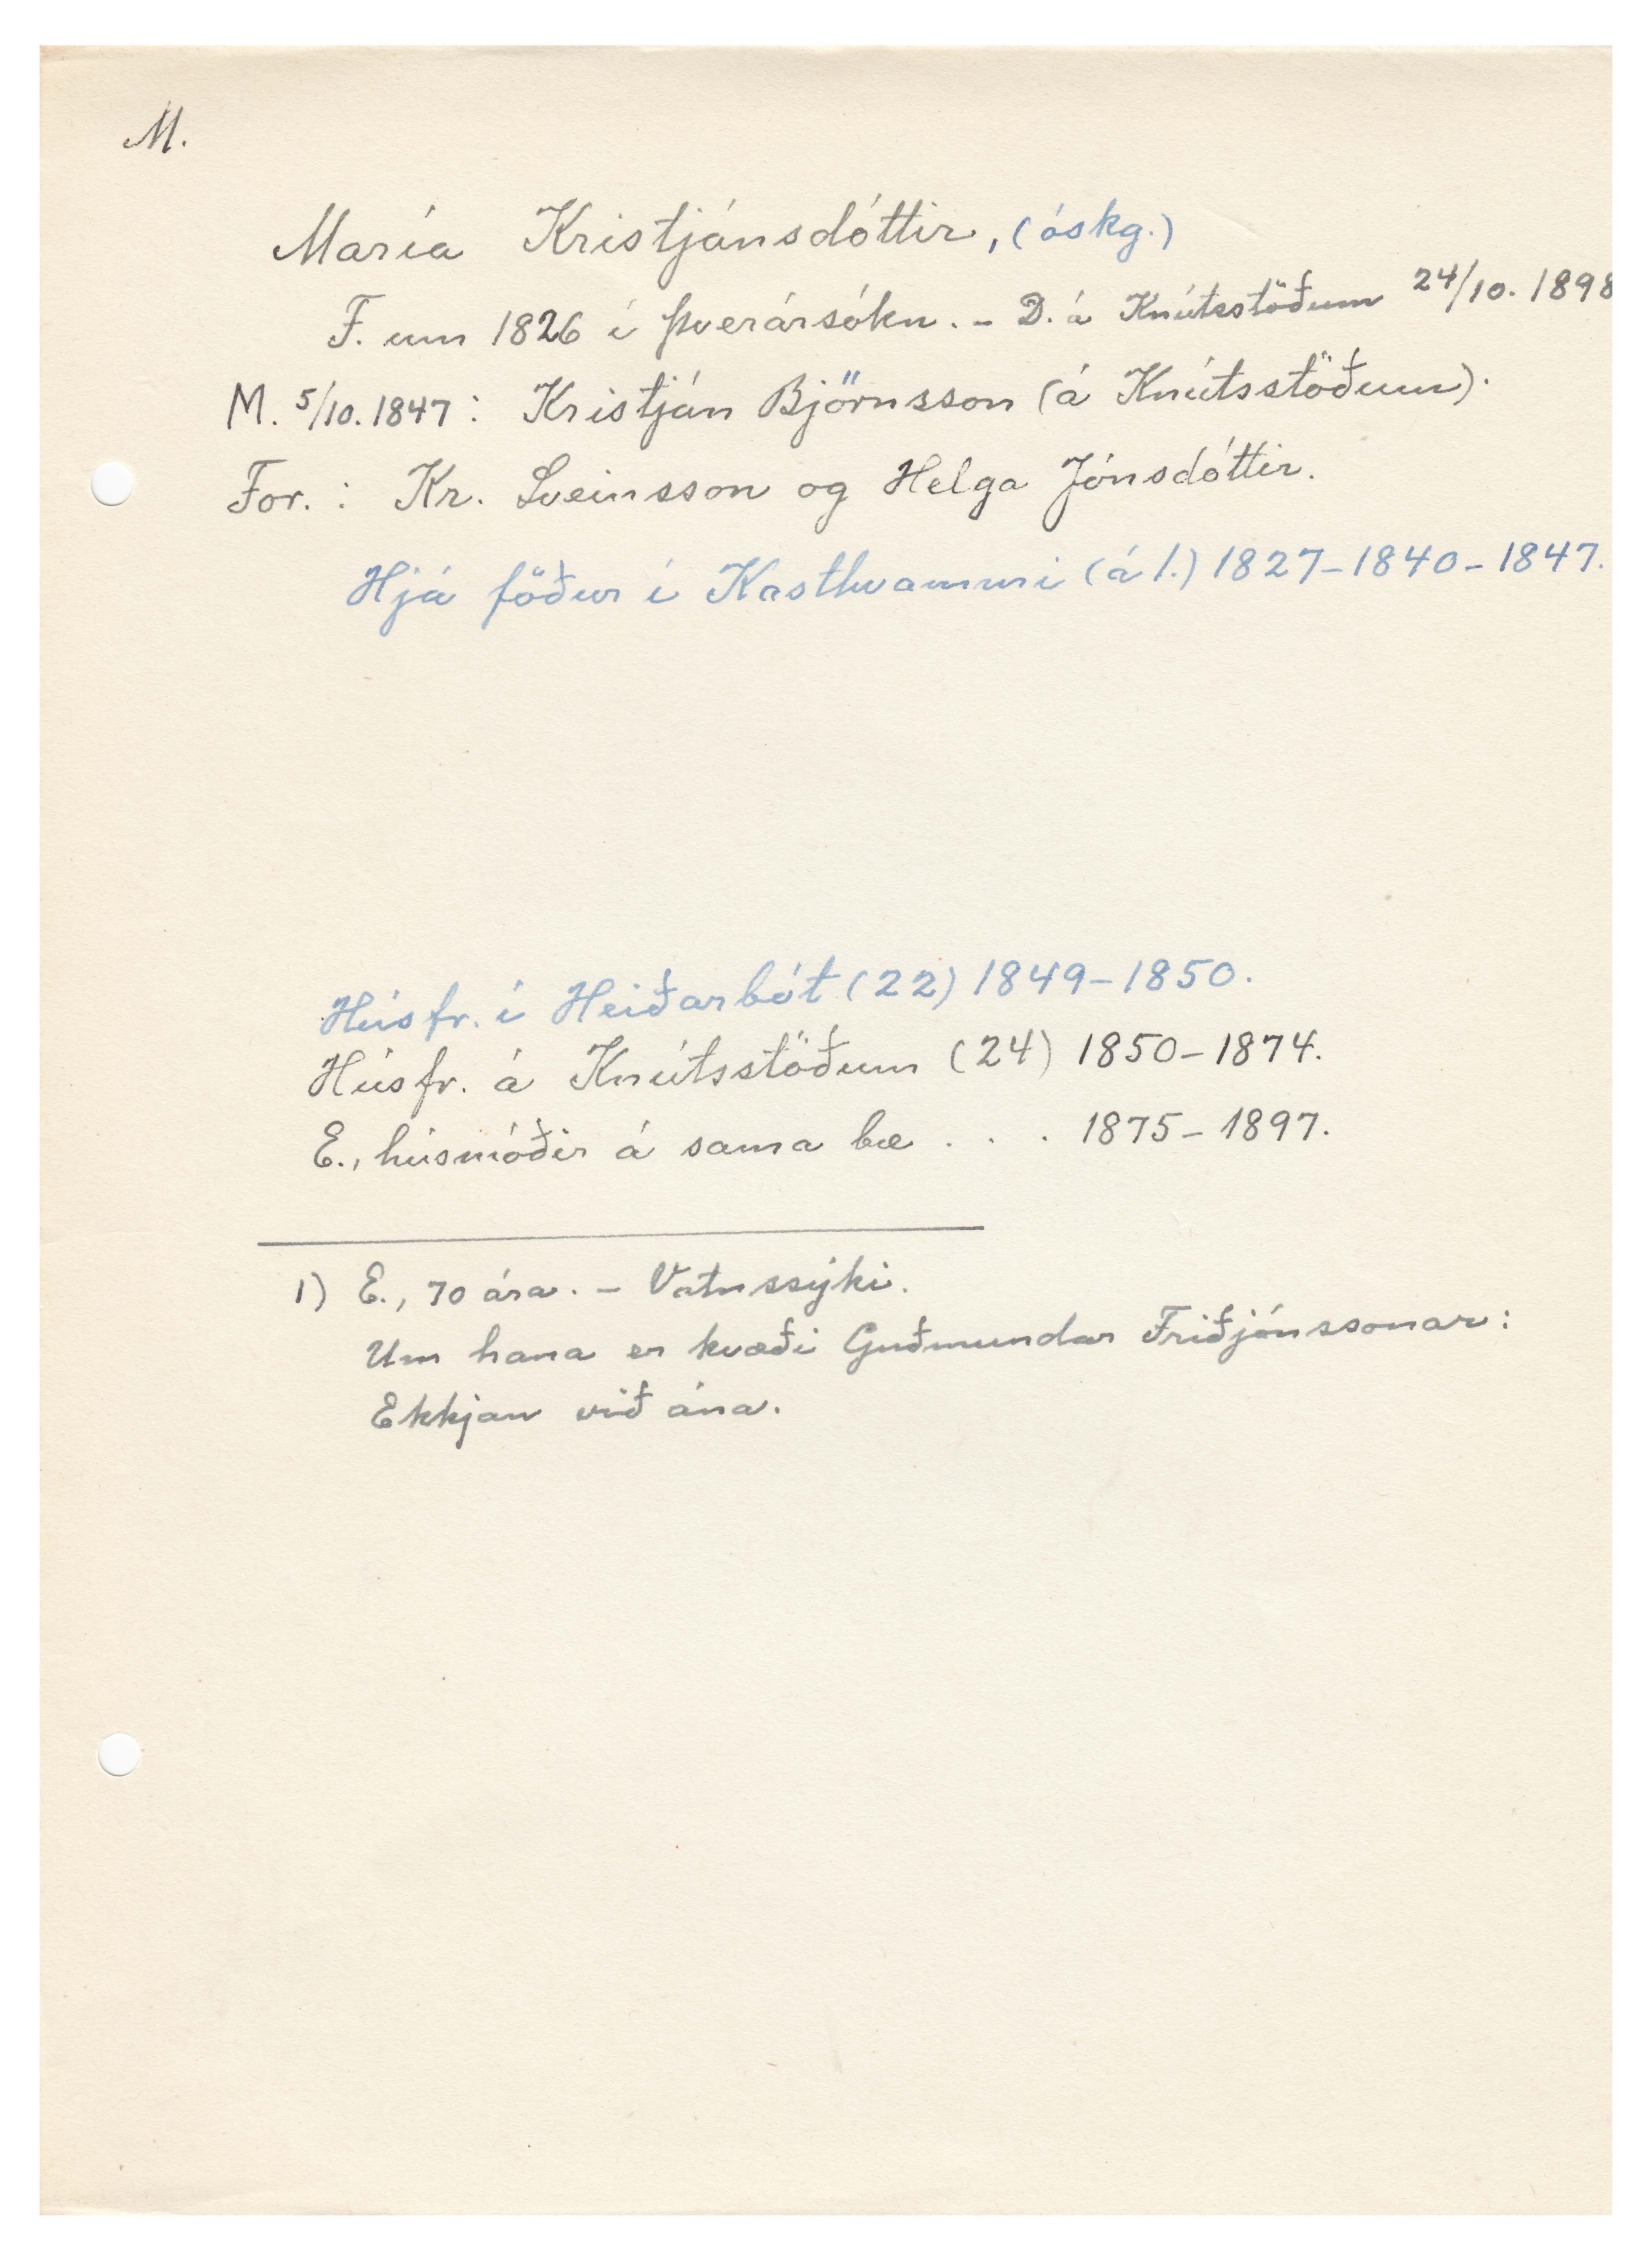 M.
María Kristjánsdóttir, (óskg.)
F. um 1826 í Þverársókn. - D. á Knútsstöðum 24/10. 1898
M. 5/10. 1847: Kristján Björnsson (á Knútsstöðum).
For.: Kr. Sveinsson og Helga Jónsdóttir.
Hjá föður í Kasthvammi (á l.) 1827-1840-1847.
Húsfr. í Heiðarbót (22) 1849-1850.
Húsfr. á Knútsstöðum (24) 1850-1874.
E., húsmóðir á sama bæ . . . 1875-1897.
1) E., 70 ára. - Vatnssýki.
Um hana er kvæði Guðmundar Friðjónssonar:
Ekkjan við ána.